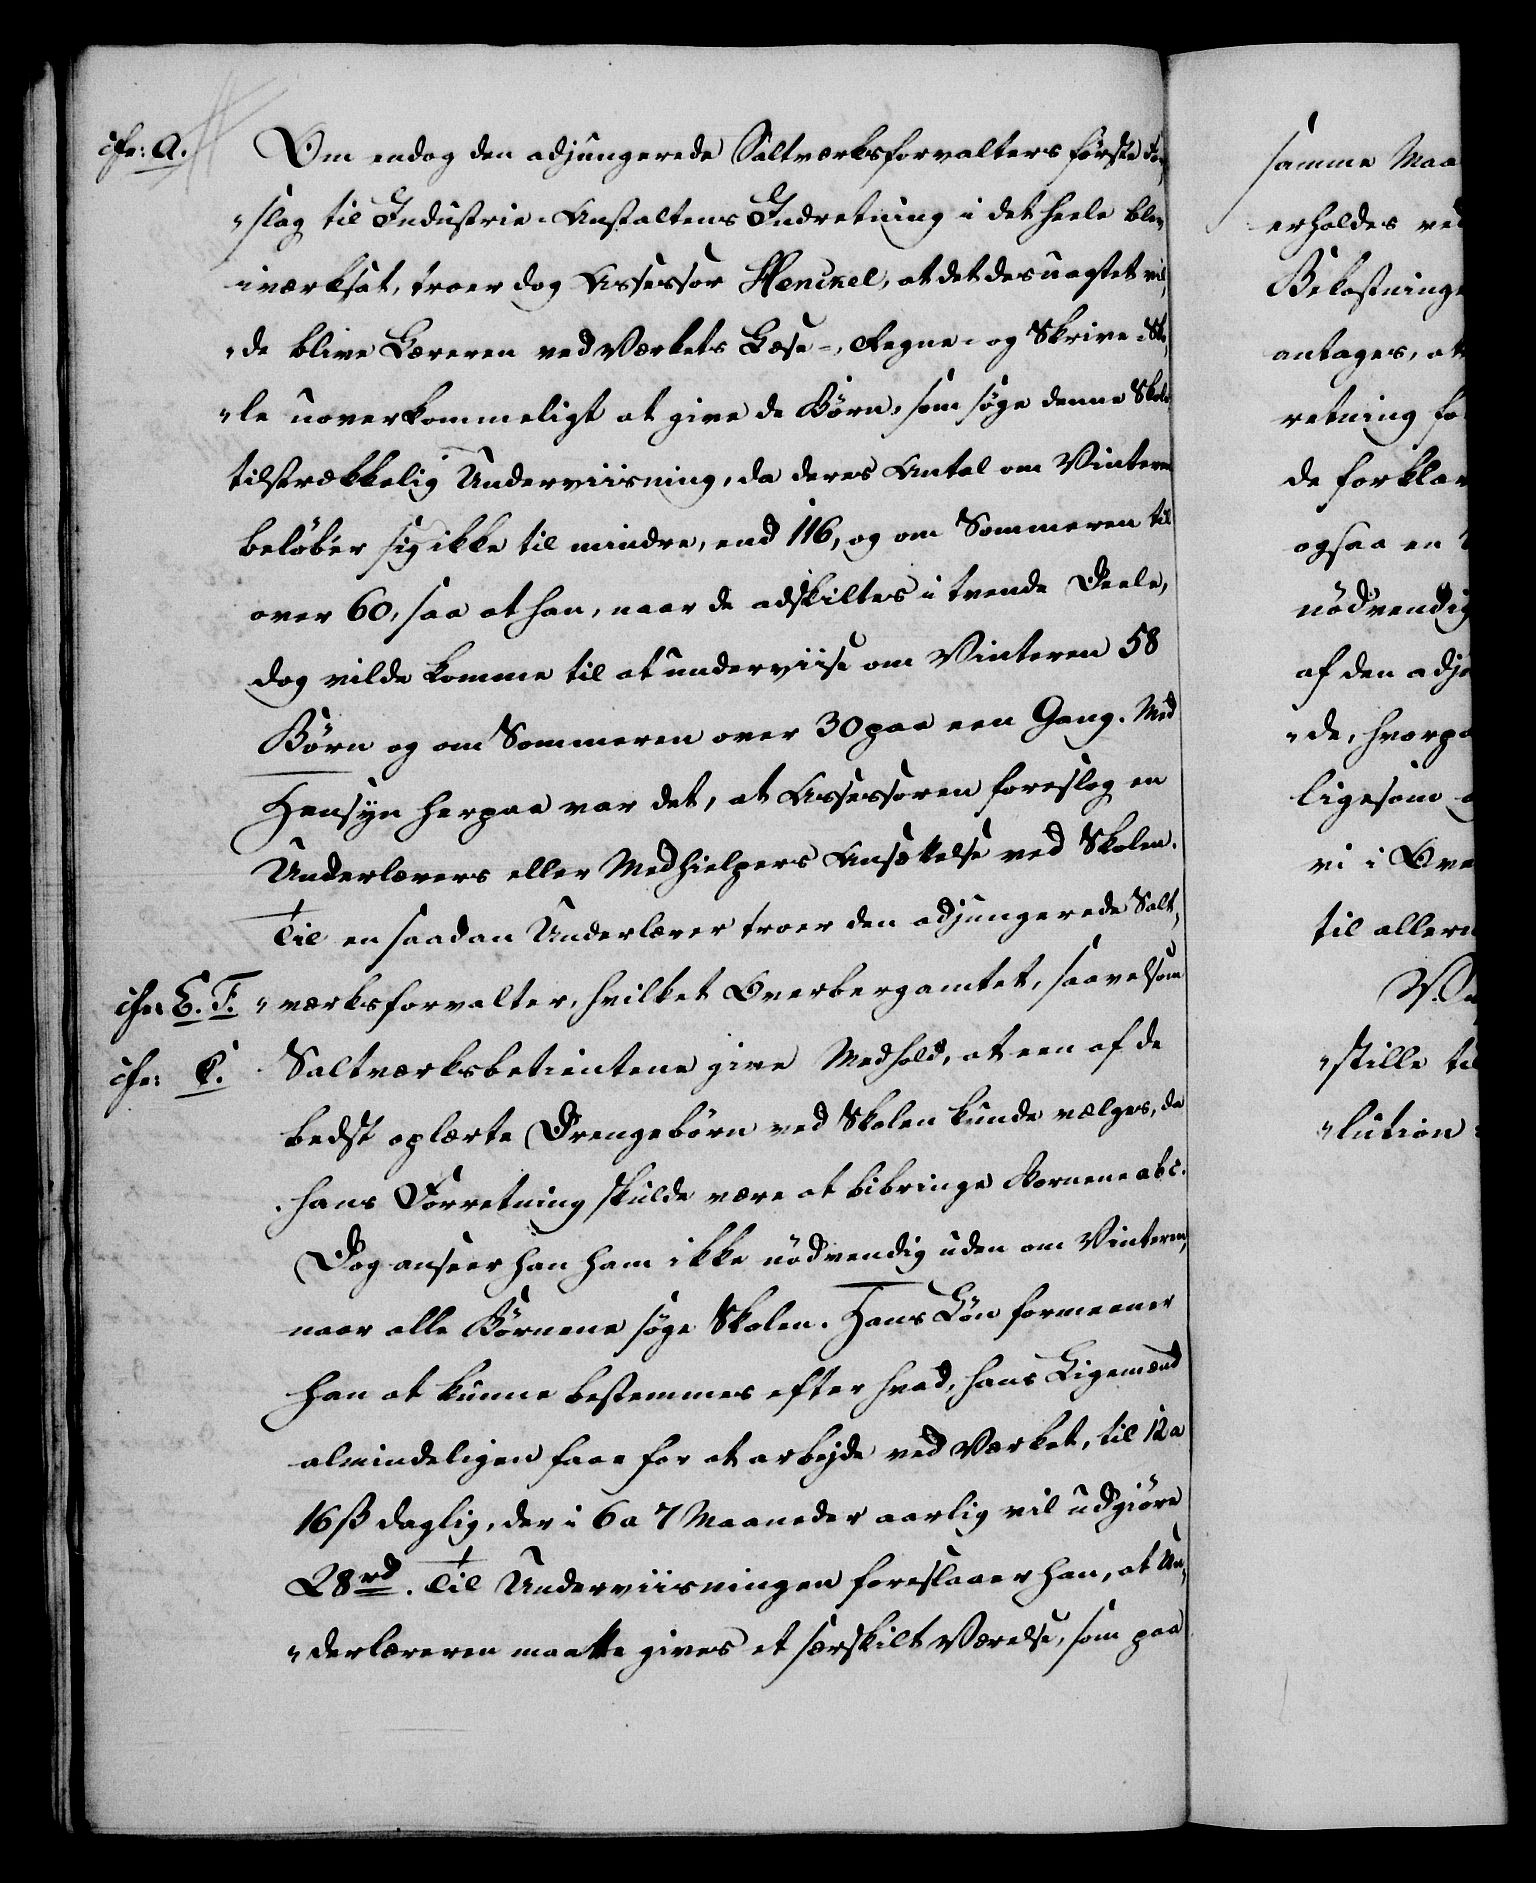 cfr: A. Om endog den adjungerede Saltværksforvalters første For¬
"slag til Industrie-Anstaltens Indretning i det heele blev
iværksat, troer dog Assessor Henckel, at det desuagtet vil¬
"de blive Læreren ved Værkets Læse-, Regne- og Skrive-Sko¬
"le uoverkommeligt at give de Børn, som søge denne Skole
tilstrækkelig Underviisning, da deres Antal om Vinteren
beløber sig ikke til mindre, end 116, og om Sommeren til
over 60, saa at han, naar de adskiltes i tvende Deele,
dog vilde komme til at underviise om Vinteren 58
Børn og om Sommeren over 30 paa een Gang. Med
Hensyn herpaa var det, at Assessoren foreslog en
Underlærers eller Medhielpers Ansættelse ved Skolen.
Til en saadan Underlærer troer den adjungerede Salt¬
cfr: E. F. "værksforvalter, hvilket Overbergamtet, saavelsom
cfr: C. Saltværksbetientene give Medhold, at een af de
bedst oplærte Drengebørn ved Skolen kunde vælges, da
hans Forretning skulde være at bibringe Børnene abc.
Dog anseer han ham ikke nødvendig uden om Vinteren,
naar alle Børnene søge Skolen. Hans Løn formeener
han at kunne bestemmes efter hvad, hans Ligemænd
almindeligen faae for at arbejde ved Værket, til 12 a
16 ß daglig, der i 6 a 7 Maaneder aarlig vil udgiøre
28 rd. Til Underviisningen foreslaaer han, at Un¬
"derlæreren maatte gives et særskilt Værelse, som paa
samme Maa
erholdes ved
Bekostninge
antages, at
retning fo
de forklar
ogsaa en
nødvendig
af den adju
"de, hvorpa
ligesom
vi i Ove
til allern
"stille til
"lution